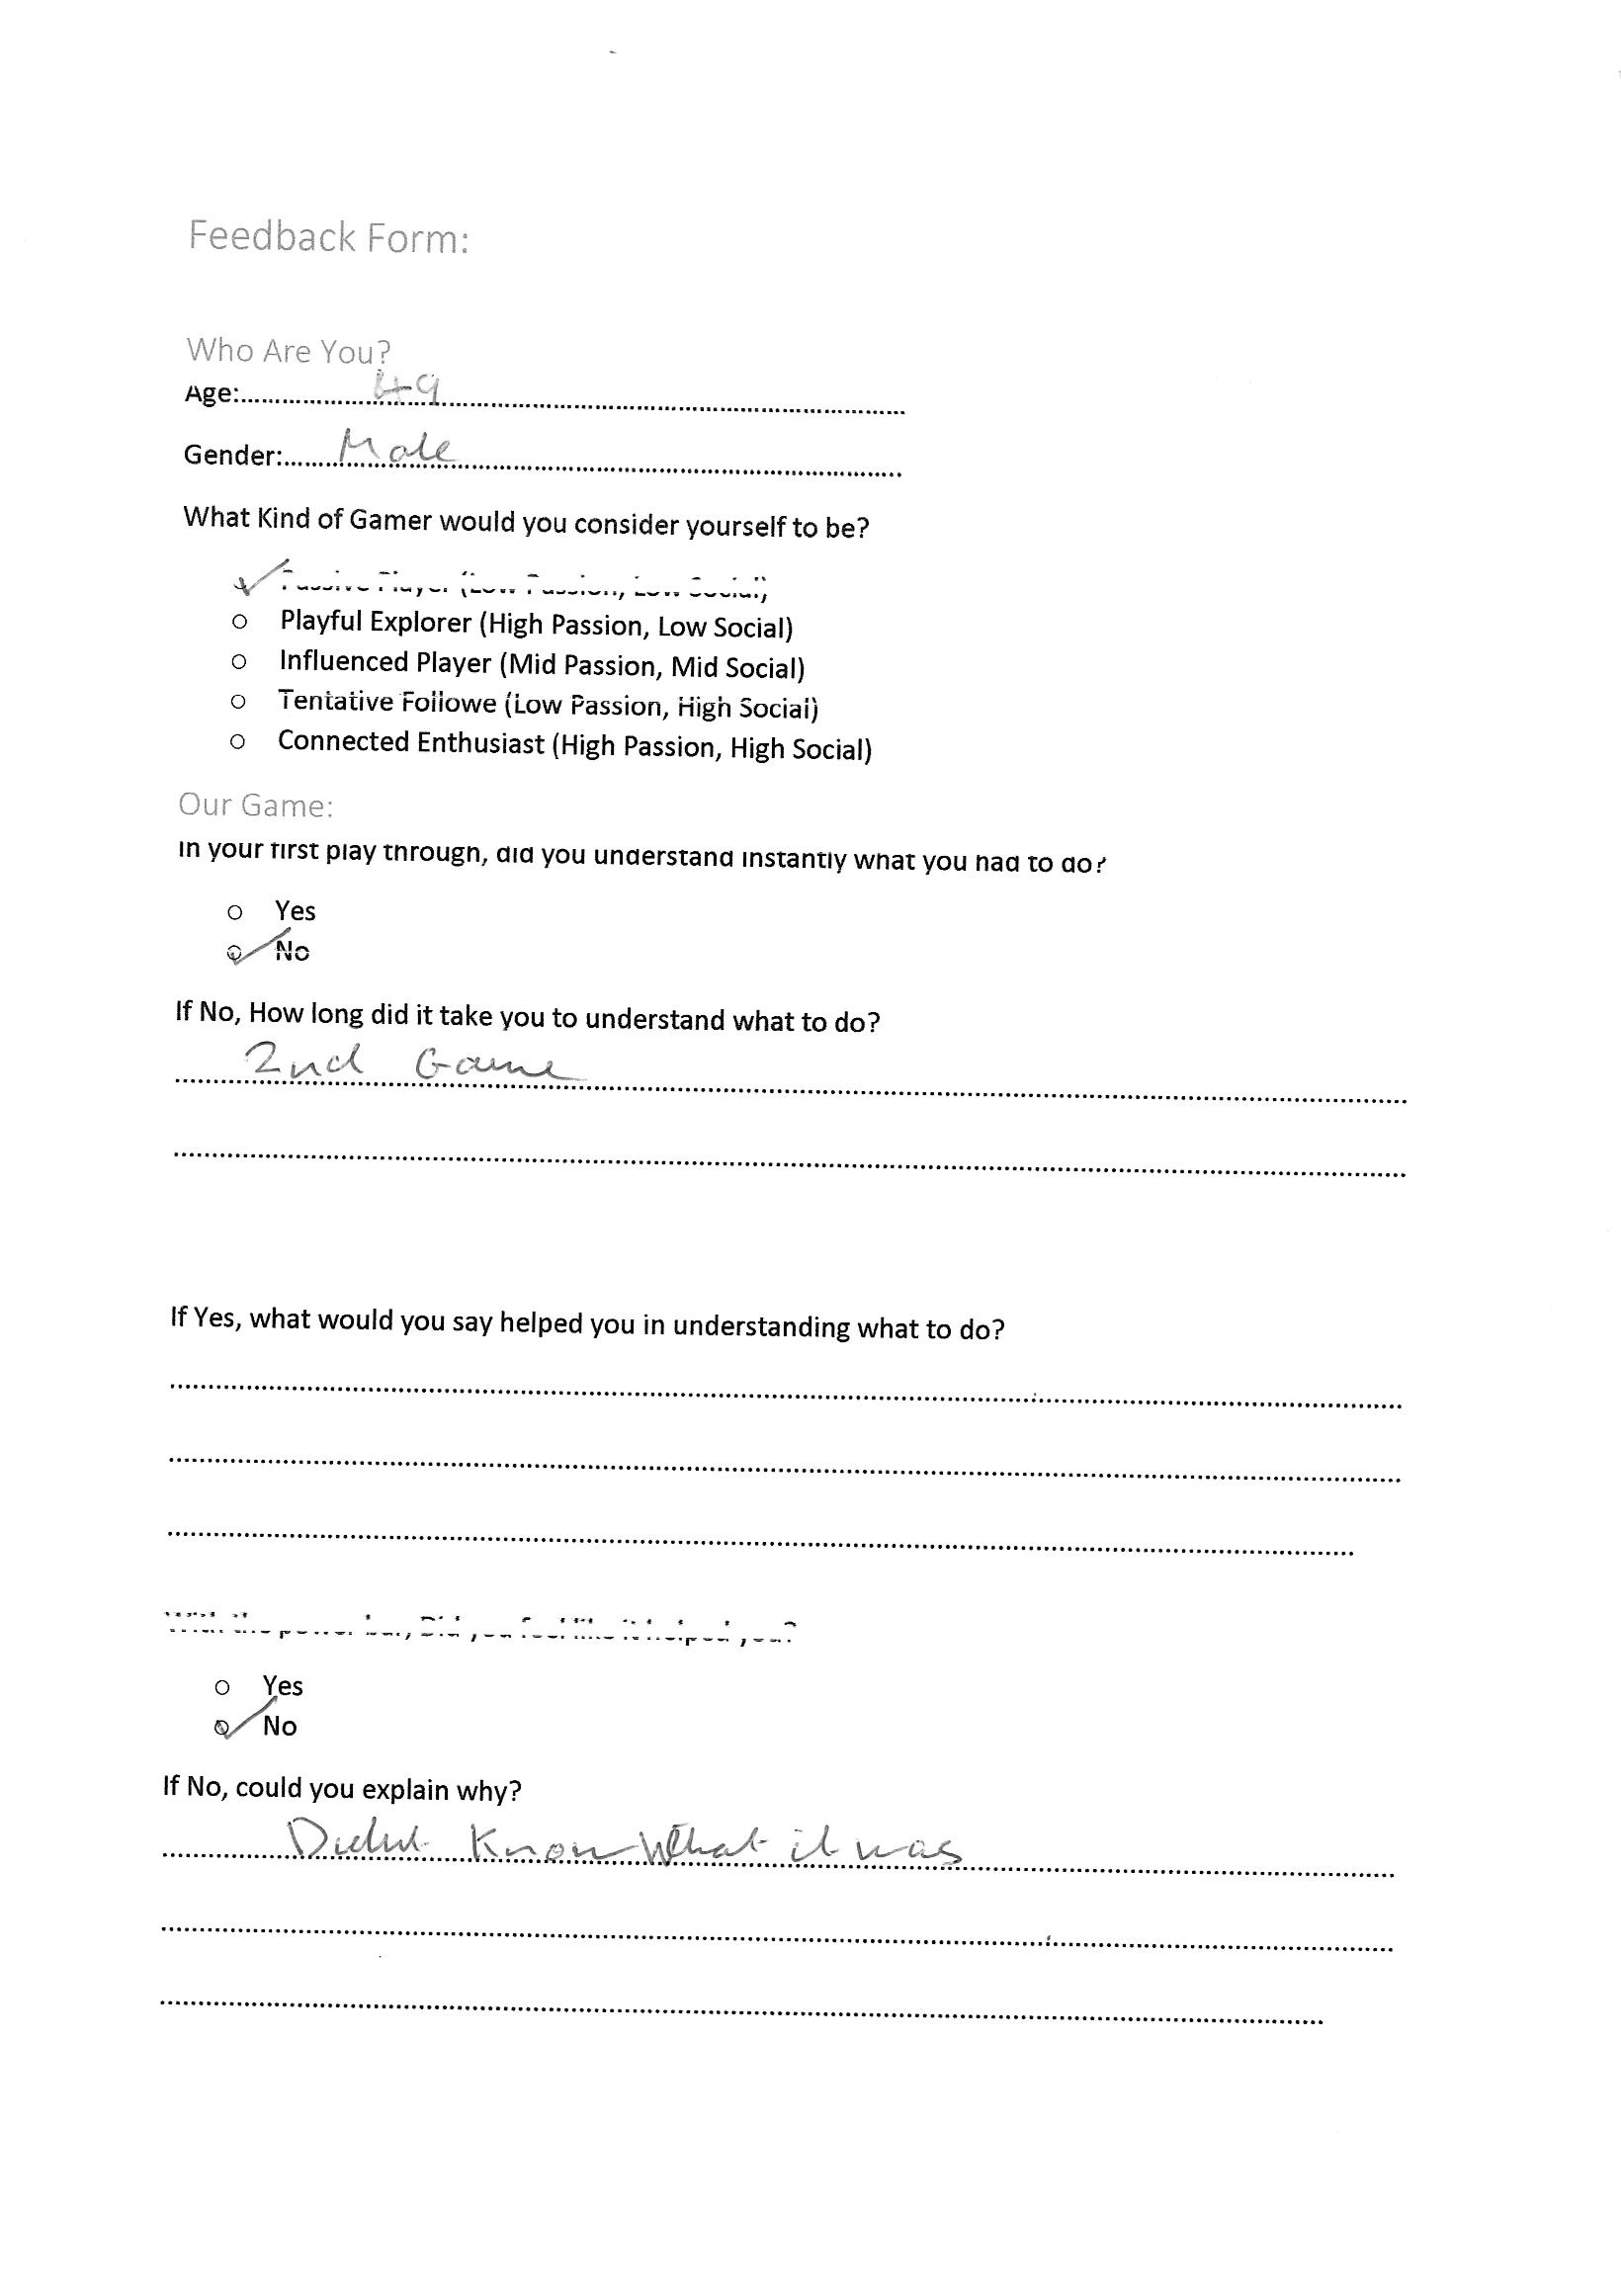 Feedback Form:
Who Are You?
Age: 49
Gender: Male
What Kind of Gamer would you consider yourself to be?
Passive Player (Low Passion, Low Social)
Playful Explorer (High Passion, Low Social)
Influenced Player (Mid Passion, Mid Social)
Tentative Followe (Low Passion, High Social)
Connected Enthusiast (High Passion, High Social)
Our Game:
In your first play through, did you understand instantly what you had to do?
Yes
No
If No, How long did it take you to understand what to do?
2nd Game
If Yes, what would you say helped you in understanding what to do?
With the power bar, Did you feel like it helped you?
Yes
No
If No, could you explain why?
Didnt Know What it was